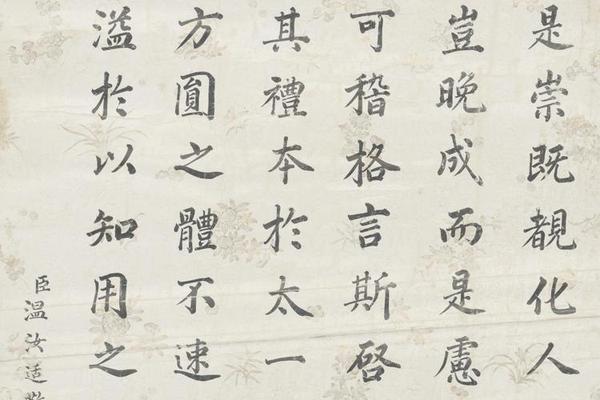 是崇既覩化人
豈晚成而是慮
可稽格言斯啓
其禮本於太一
方圓之體不速
溢於以知用之
臣温汝适敬